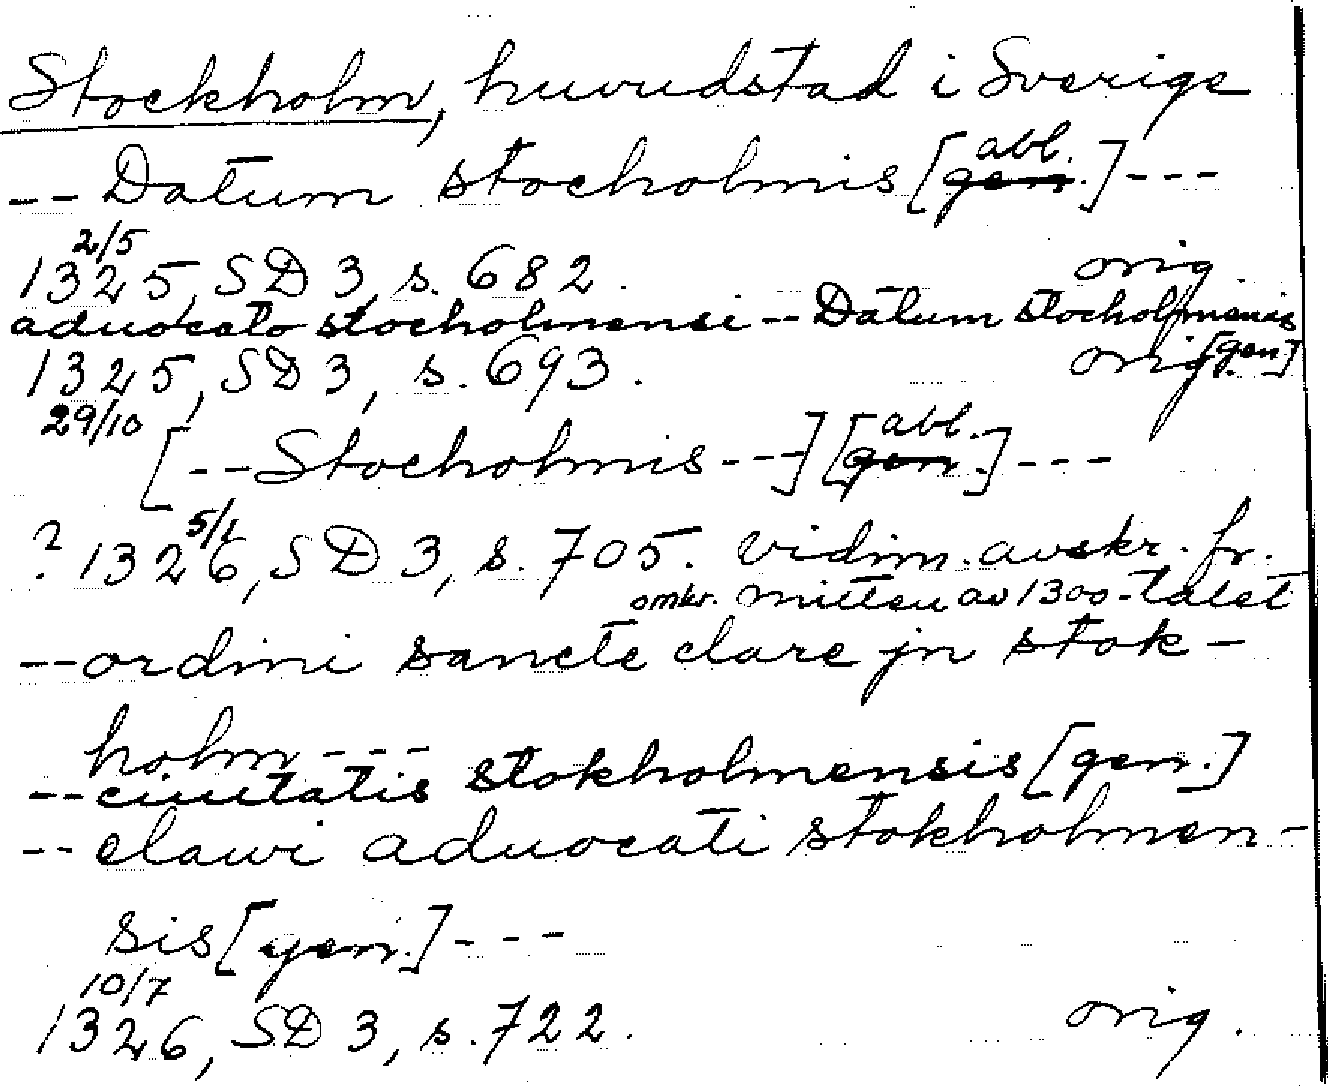 Stockholm, huvudstad i Sverige
abl.
-- Datum stocholmis [gen.] ---
2/5
1325, SD 3, s. 682. orig.
aduocato stocholmensi -- Datum stocholmensis
1325, SD 3, s. 693. orig. [gen]
29/10
abl.
[-- Stocholmis ---] [gen.] ---
5/1
? 1326, SD 3, s. 705. vidim. avskr. fr.
omkr. mitten av 1300-talet
-- ordini sancte clare jn stok-
holm ---
-- ciuitatis stokholmensis [gen.]
-- clawi aduocati stokholmen-
sis [gen.] ---
10/7
1326, SD 3, s. 722. orig.